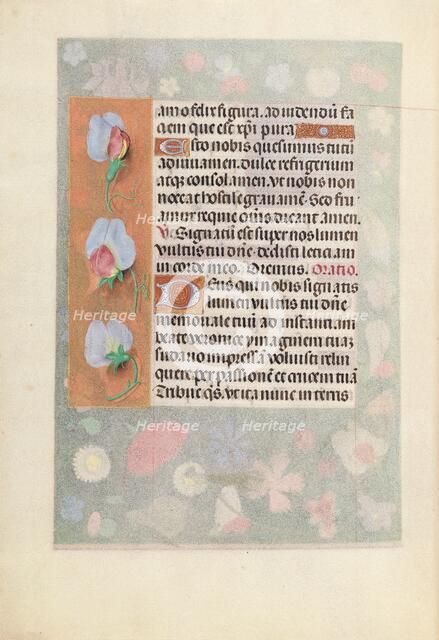 amo felix figura. ad videndũ fa
ciem que est xp̃i pura
Esto nobis quesumus tutũ
adiuuamen. dulce refrigerium
atq; consolamen. Vt nobis non
noceat hostile grauamẽ. Sed fru
amur requie om̃s dicant amen.
Vs. Signatũ est super nos lumen
vultus tui dñe. dedisti leticiam
in corde meo. Oremus. Oratio.
Deus qui nobis signatis
lumen vultus tui dñe
memoriale tuũ ad instantiam
beate veronice ymaginem tuaz
sudario impressã voluisti relin
quere per passionẽ et crucem tuã
Tribue qs. vt ita nunc in terris
Heritage
Heritage
Heritage
Heritage